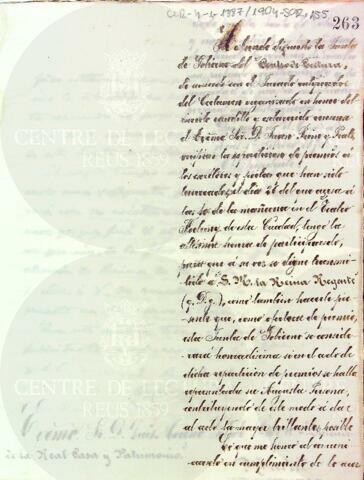 CCR-4-1 1887/1904-SOR, 155
263
Habiendo dispuesto la Junta
de Gobierno del Centro de Lectura,
de acuerdo con el Jurado calificador
del Certamen organizado en honor del
ínclito caudillo y esclarecido reusense
el Excmo Sr. D. Juan Prim y Prats,
verificar la repartición de premios a
los escritores y poetas que han sido
laureados, el día 26 del que cursa a
las 10 de la mañana en el Teatro
Fortuny de esta Ciudad, tengo la
altísima honra de participárselo,
para que a su vez se digne transmi-
tirlo a S. M. la Reina Regente
(q. D. g.), como también hacerle pre-
sente que, como ofertora de premio,
esta Junta de Gobierno se conside-
rará honradísima si en el acto de
dicha repartición de premios se halla
representada su Augusta Persona,
contribuyendo de este modo a dar
al acto la mayor brillantez posible
Lo que me honro al comuni-
carselo en cumplimiento de lo acor-
Excmo. Sr. D. Luis
de la Real Casa y Patrimonio.
CENTRE DE LECTURA
REUS 1859
CENTRE DE LECTURA
REUS 1859